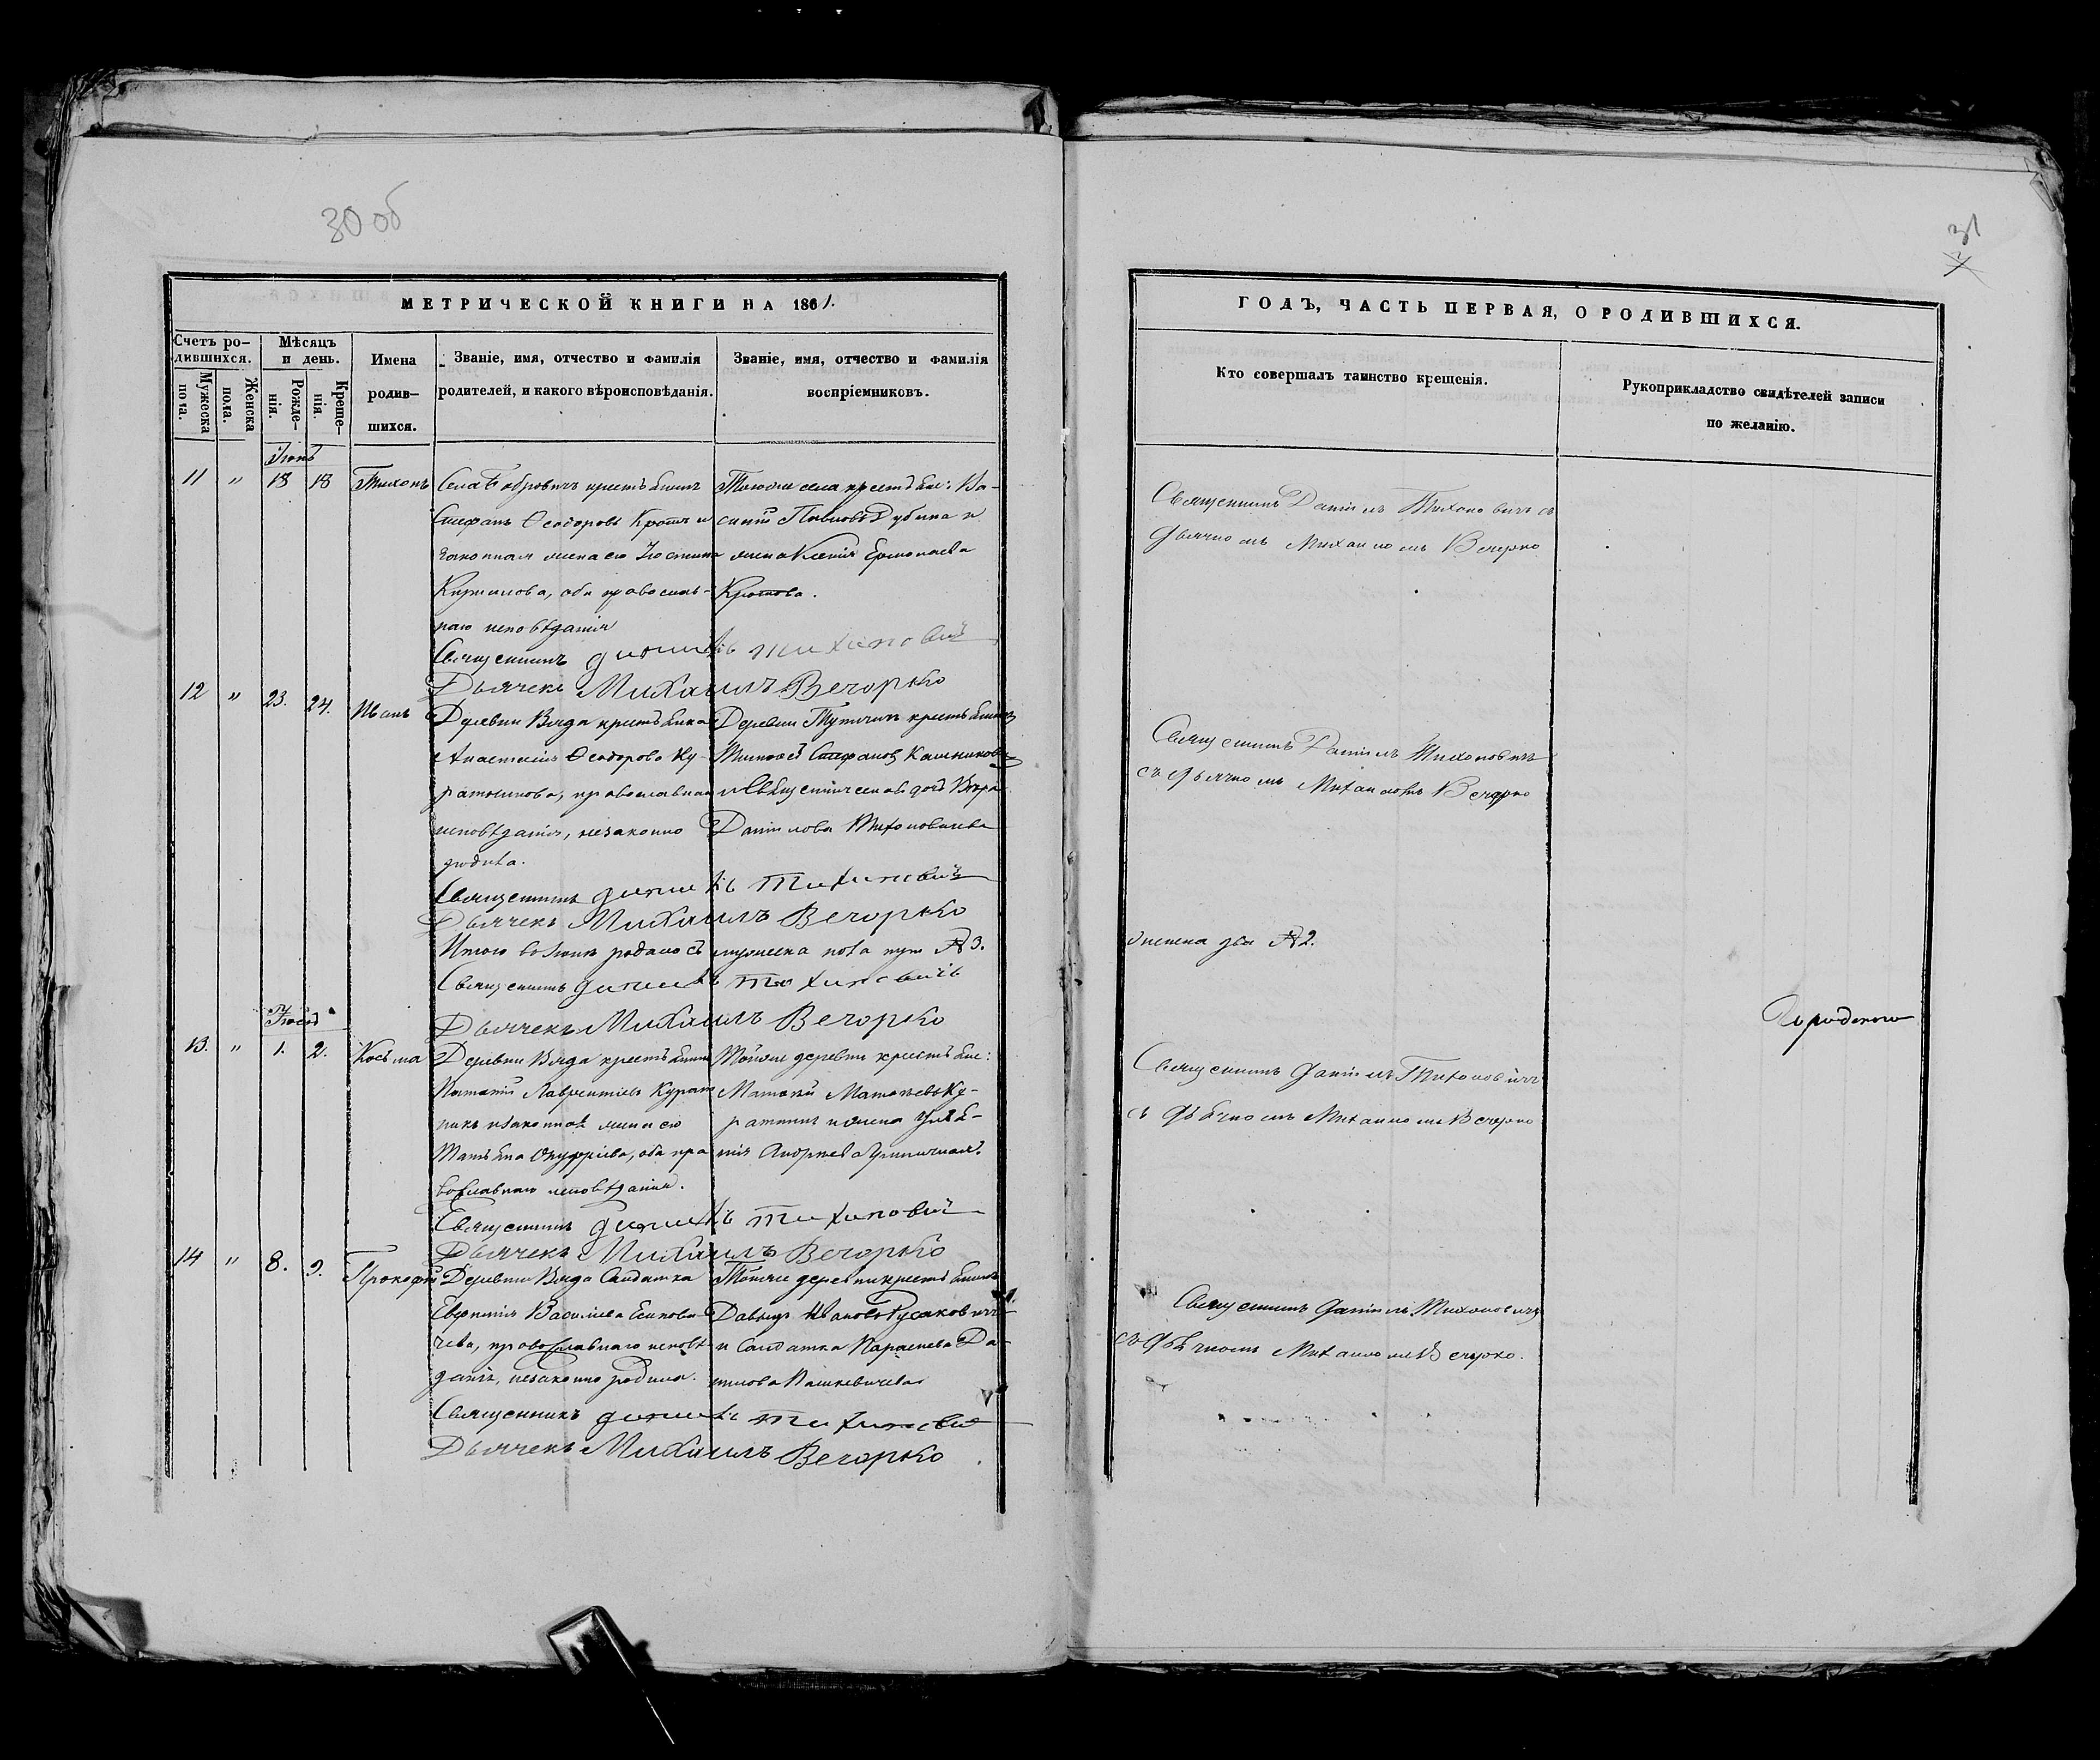 30 об
31
МЕТРИЧЕСКОЙ КНИГИ НА 1861.
Счетъ ро-
дившихся.
Мѣсяцъ
и день.
Имена
родив-
шихся.
Званіе, имя, отчество и фамилія
родителей, и какого вѣроисповѣданія.
Званіе, имя, отчество и фамилія
воспріемниковъ.
Мужеска
пола.
Женска
пола.
Рожде-
нія.
Креще-
нія.
Іюнь
11 " 18 18 Тихонъ
Села Бобровичъ крестьянинъ
Стефанъ Ѳеодоровъ Кротъ и
законная жена его Іустина
Кирилова, оба православ-
наго исповѣданія
Тогоже села крестьян: Ва-
силій Павловъ Дубина и
жена Ксенія Ермолаева
Кротова.
Священникъ Даніилъ Тихоновичъ
Дьячекъ Михаилъ Вечорко
12 " 23. 24. Иванъ
Деревни Вяда крестьянка
Анастасія Ѳеодорова Ку-
ратникова, православнаго
исповѣданія, незаконно
родила.
Деревни крестьянинъ
Тимоѳей Стефановъ
и Священническая дочь Вѣра
Даніилова Тихоновичева
Священникъ Даніилъ Тихоновичъ
Дьячекъ Михаилъ Вечорко
Итого въ Іюнѣ родилось мужеска пола три № 3.
Священникъ Даніилъ Тихоновичъ
Дьячекъ Михаилъ Вечорко
Іюль
13. " 1. 2. Косьма
Деревни Вяда крестьянинъ
Игнатій Лаврентіевъ Курат-
никъ и законная жена его
Татьяна Онуфріева, оба пра-
вославнаго исповѣданія.
Тойже деревни крестьян:
Матвѣй Матвѣевъ Ку-
ратникъ и жена
Андреева
Священникъ Даніилъ Тихоновичъ
Дьячекъ Михаилъ Вечорко
14 " 8. 9. Прокофій
Деревни Вяда Солдатка
Евфимія Василіева
православнаго исповѣ-
данія, незаконно родила.
Тойже деревни крестьянинъ
Давыдъ Ивановъ Русаковичъ
и Солдатка Параскева Да-
ниилова Пашкевичева
Священникъ Даніилъ Тихоновичъ
Дьячекъ Михаилъ Вечорко
ГОДЪ, ЧАСТЬ ПЕРВАЯ, О РОДИВШИХСЯ.
Кто совершалъ таинство крещенія.
Рукоприкладство свидѣтелей записи
по желанію.
Священникъ Даніилъ Тихоновичъ съ
дьячкомъ Михаиломъ Вечорко
Священникъ Даніилъ Тихоновичъ
съ дьячкомъ Михаиломъ Вечорко
женска два № 2.
Священникъ Даніилъ Тихоновичъ
съ дьячкомъ Михаиломъ Вечорко
Священникъ Даніилъ Тихоновичъ
съ дьячкомъ Михаиломъ Вечорко.